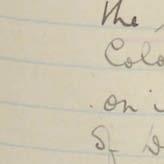 the
Colo
on i
of